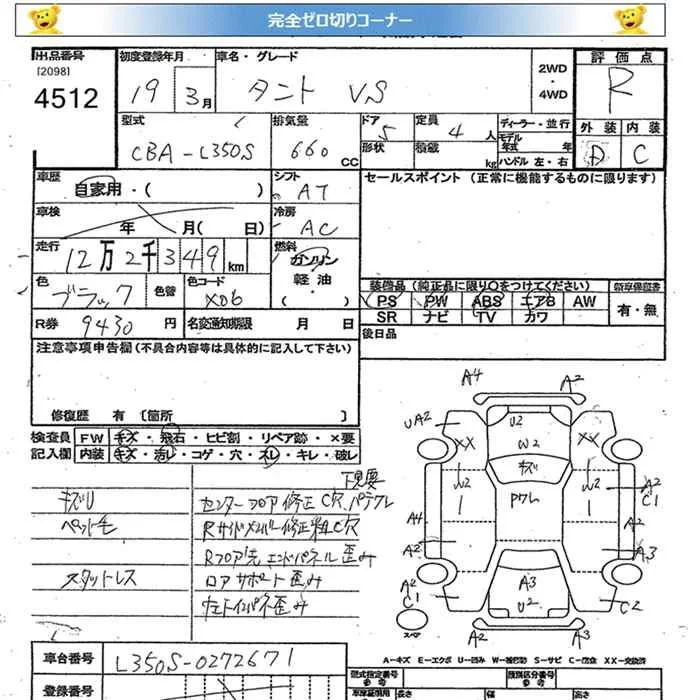 完全ゼロ切りコーナー
出品番号 初度登録年月 車名・グレード 評価点
[2098]
4512 19 3月 タント VS 2WD・4WD R
型式 排気量 ドア 定員 ディーラー・並行 外装 内装
CBA-L350S 660 CC 5 4人 モデル年式 年 D C
形状 積載 kg ハンドル 左・右
車歴 シフト セールスポイント (正常に機能するものに限ります)
自家用・( ) AT
車検 冷房
年 月( 日) AC
走行 燃料
12万2千349km ガソリン
軽油・( )
色 色替 色コード 装備品(純正品に限り〇をつけてください) 新車保証書
ブラック X06 PS PW ABS エアB AW 有・無
SR ナビ TV カワ
R券 9430円 名変通知期限 月 日 後日品
注意事項申告欄(不具合内容等は具体的に記入して下さい)
修復歴 有 [箇所 ]
検査員 FW キズ・飛石・ヒビ割・リペア跡・×要
記入欄 内装 キズ・汚レ・コゲ・穴・スレ・キレ・破レ
下見要
キズU センターフロア修正C穴パテクレ
ペット毛 Rサイドメンバー修正粗C穴
Rフロア先エンドパネル歪み
スタットレス ロアサポート歪み
A4 A2
UA2 U2
XX W2 XX
キズ
W2 W2 A2
PクレM C1
A4 A2
A2 A3
A2 A3
C1 U2 C2
スペア A2 A3
A-キズ E-エクボ U-凹み W-補修跡 S-サビ C-腐食 XX-交換済
車台番号 L350S-0272671
登録番号 型式指定番号 類別区分番号
長さ 幅 高さ